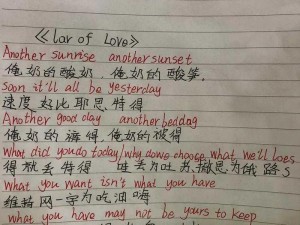 《Lar of Love》
Another sunrise another sunset
俺奶的酸奶，俺奶的酸笋
soon it'll all be yesterday
速度 好比耶思特得
Another good day anotherbadday
俺奶的 海得，俺奶的被得
What did you do today/why dowe choose what we'll loes
得就丢特得 吐丢为吐
What you want isn't what you have
维特网一字为吃油嗨
what you have may not be yours to keep